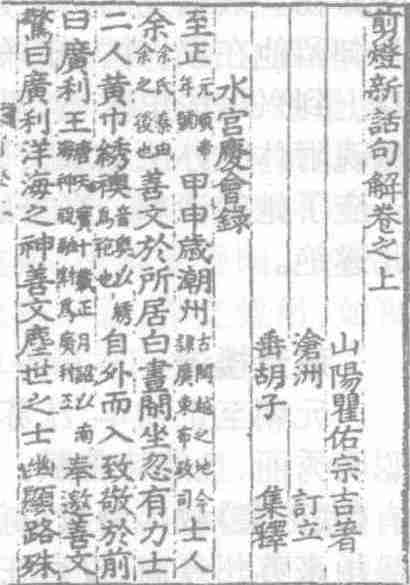 剪燈新話句解卷之上
山陽瞿佑宗吉著
滄洲 訂立
垂胡子 集釋
水宮慶會錄
至正元順帝年號甲申歲潮州古閩越之地今隸廣東布政司士人
余余氏秦由余之後也善文於所居白晝閒坐忽有力士
二人黃巾綉襖音奧以綉爲袍也自外而入致敬於前
曰廣利王唐天寶十載正月詔以南海神祝融封爲廣利王奉邀善文
驚曰廣利洋海之神善文塵世之士幽顯路殊